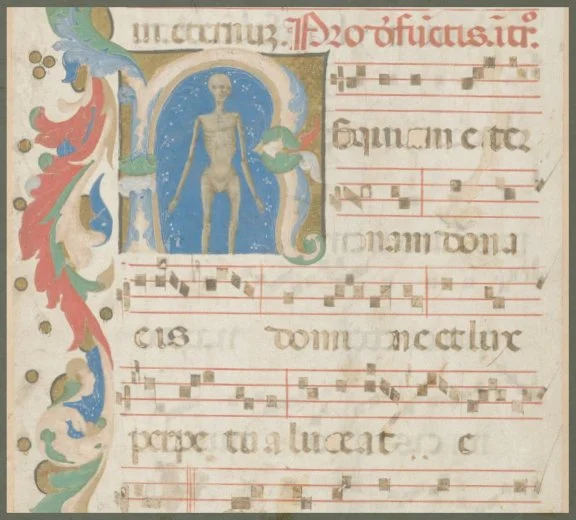 in eternuz. Pro dīfūctis. itr̄.
Requiem eter
nam dona
eis domine et lux
perpetua luceat e